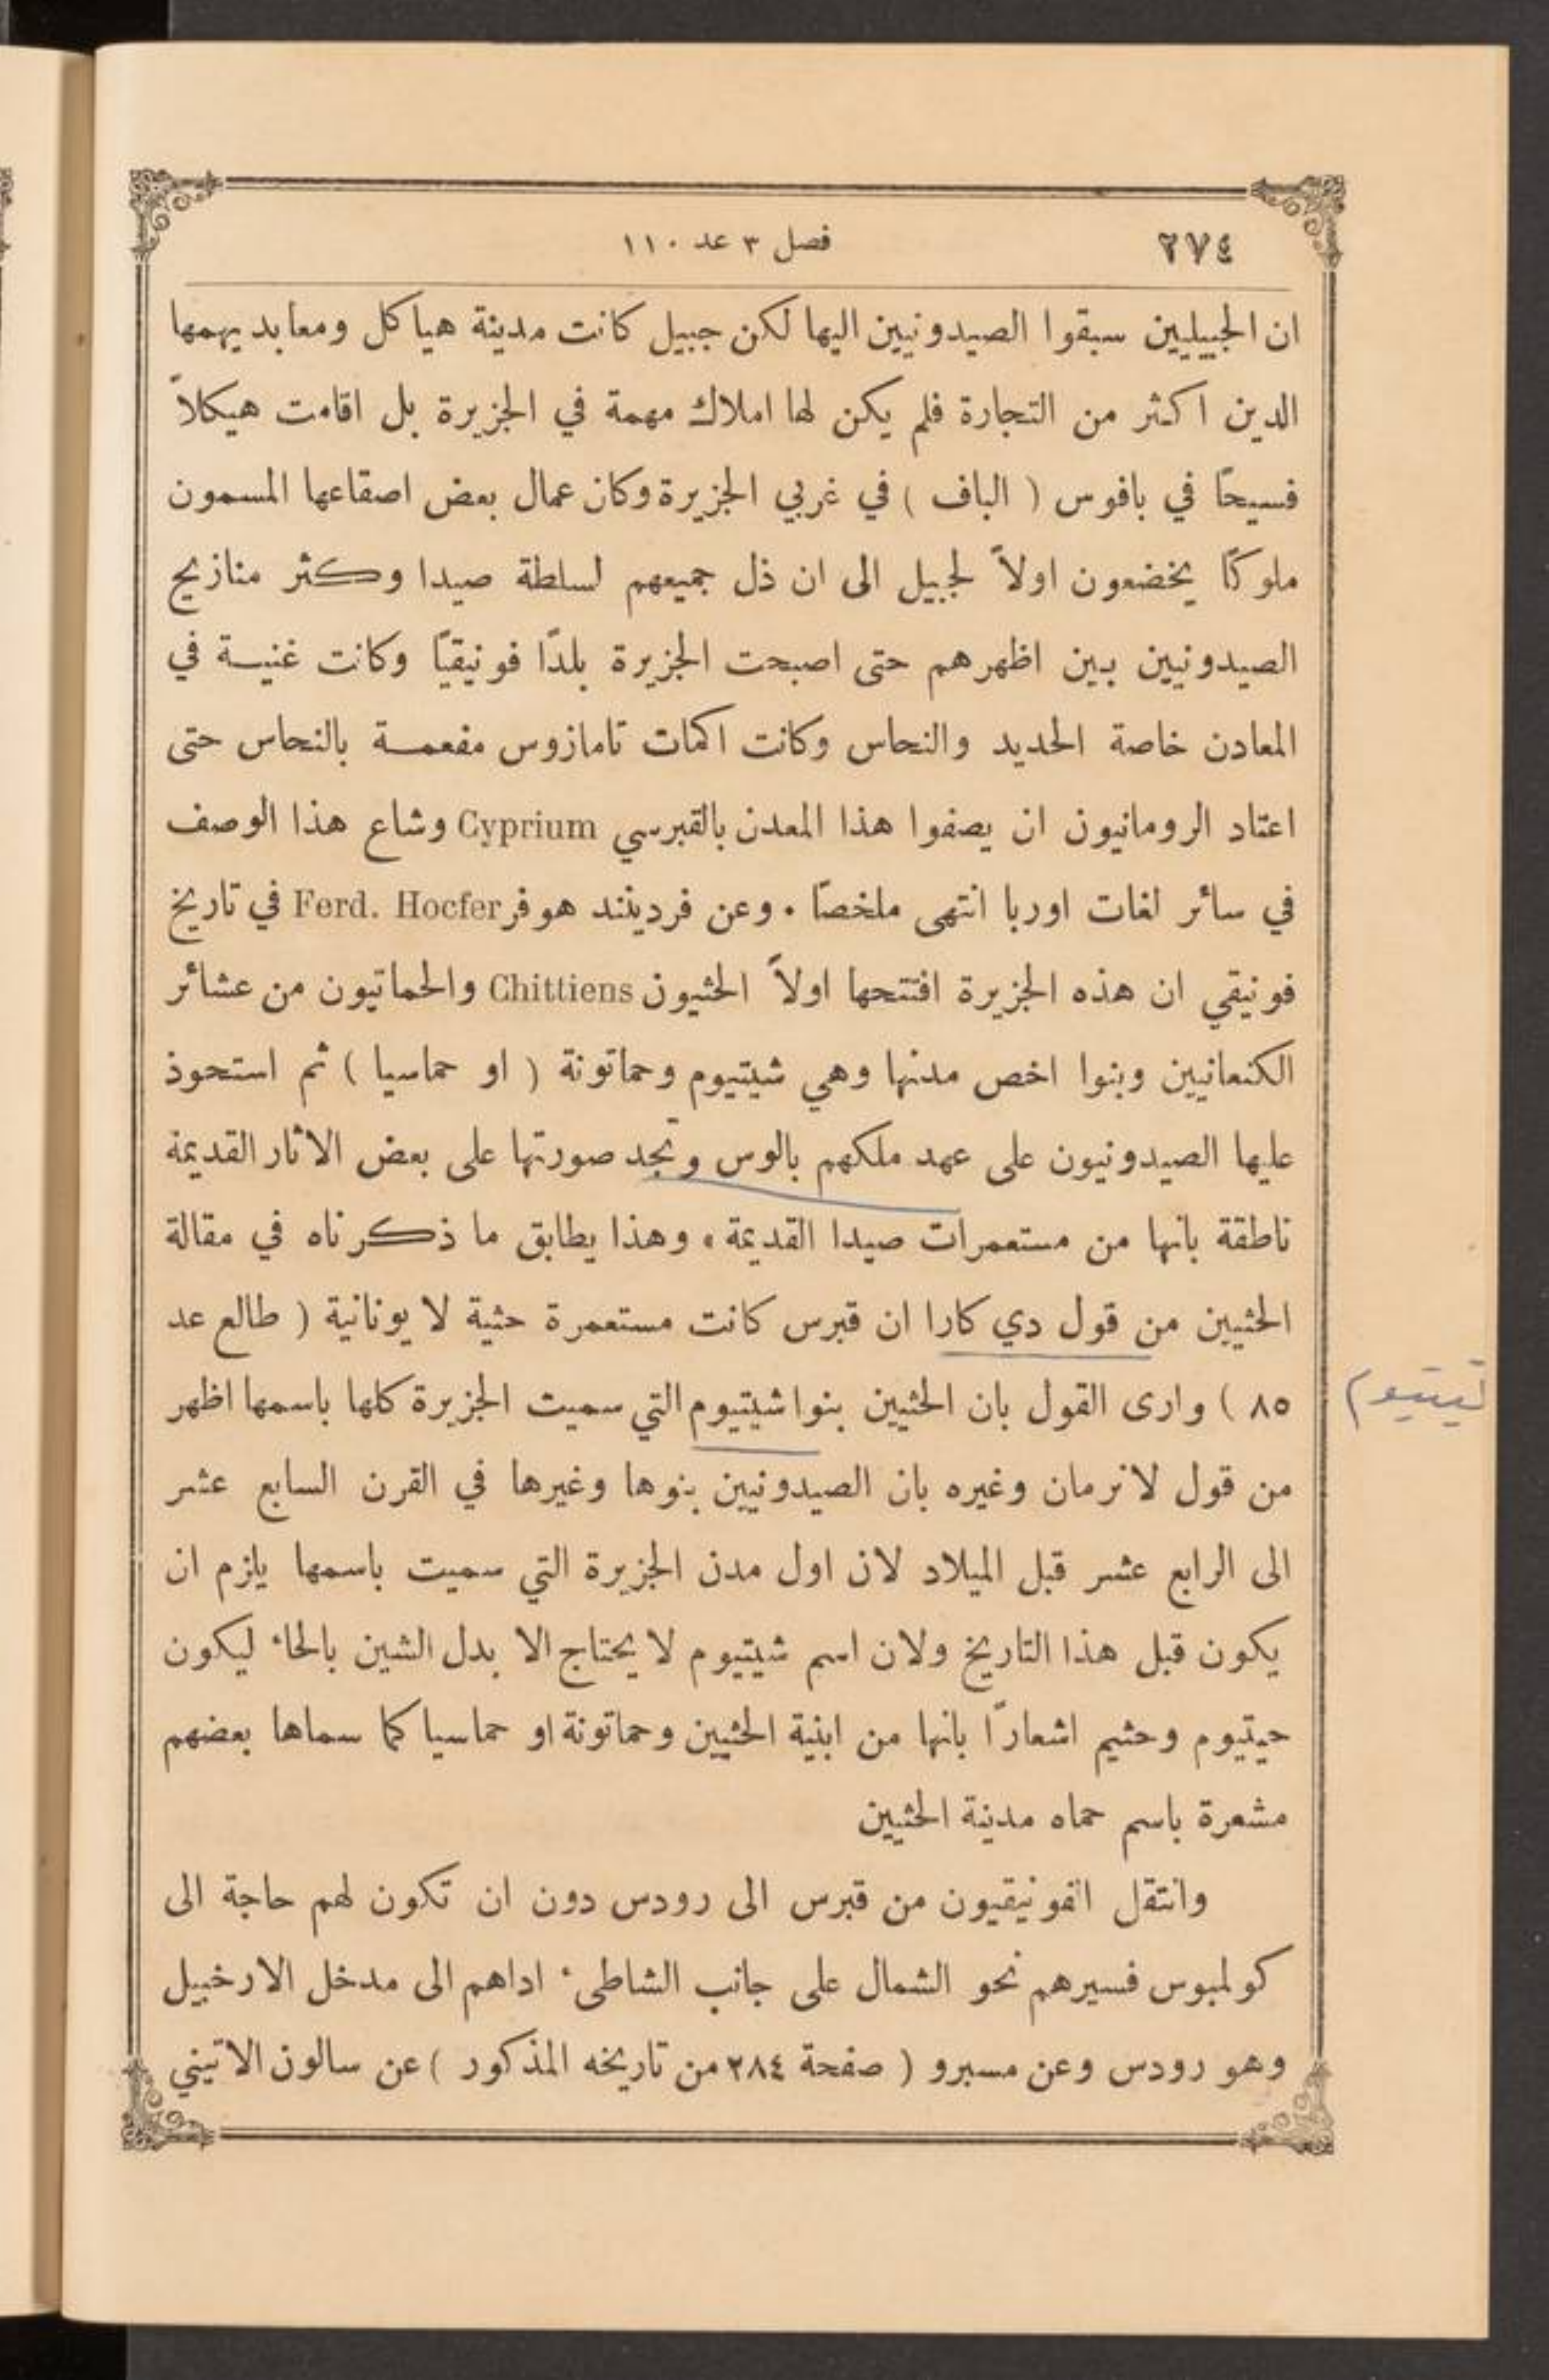 ٢٧٤
فصل ٣ عد ١١٠
ان الجبيليين سبقوا الصيدونيين اليها لكن جبيل كانت مدينة هياكل ومعابد يهمها
الدين اكثر من التجارة فلم يكن لها املاك مهمة في الجزيرة بل اقامت هيكلاً
فسيحًا في بافوس ( الباف ) في غربي الجزيرة وكان عمال بعض اصقاعها المسمون
ملوكًا يخضعون اولاً لجبيل الى ان ذل جميعهم لسلطة صيدا وكثر منازيح
الصيدونيين بين اظهرهم حتى اصبحت الجزيرة بلدًا فونيقيًا وكانت غنية في
المعادن خاصة الحديد والنحاس وكانت اكمات تامازوس مفعمة بالنحاس حتى
اعتاد الرومانيون ان يصفوا هذا المعدن بالقبرسي Cyprium وشاع هذا الوصف
في سائر لغات اوربا انتهى ملخصًا . وعن فرديند هوفر Ferd. Hocfer في تاريخ
فونيقي ان هذه الجزيرة افتتحها اولاً الحثيون Chittiens والحماتيون من عشائر
الكنعانيين وبنوا اخص مدنها وهي شيتيوم وحماتونة ( او حماسيا ) ثم استحوذ
عليها الصيدونيون على عهد ملكهم بالوس وتجد صورتها على بعض الاثار القديمة
ناطقة بانها من مستعمرات صيدا القديمة . وهذا يطابق ما ذكرناه في مقالة
الحثيين من قول دي كارا ان قبرس كانت مستعمرة حثية لا يونانية ( طالع عد
٨٥ ) وارى القول بان الحثيين بنوا شيتيوم التي سميت الجزيرة كلها باسمها اظهر
تيتيوم
من قول لانرمان وغيره بان الصيدونيين بنوها وغيرها في القرن السابع عشر
الى الرابع عشر قبل الميلاد لان اول مدن الجزيرة التي سميت باسمها يلزم ان
يكون قبل هذا التاريخ ولان اسم شيتيوم لا يحتاج الا بدل الشين بالحاء ليكون
حيتيوم وحثيم اشعارًا بانها من ابنية الحثيين وحماتونة او حماسيا كما سماها بعضهم
مشعرة باسم حماه مدنية الحثيين
وانتقل الفونيقيون من قبرس الى رودس دون ان تكون لهم حاجة الى
كولمبوس فسيرهم نحو الشمال على جانب الشاطىء اداهم الى مدخل الارخبيل
وهو رودس وعن مسبرو ( صفحة ٢٨٤ من تاريخه المذكور ) عن سالون الاتيني